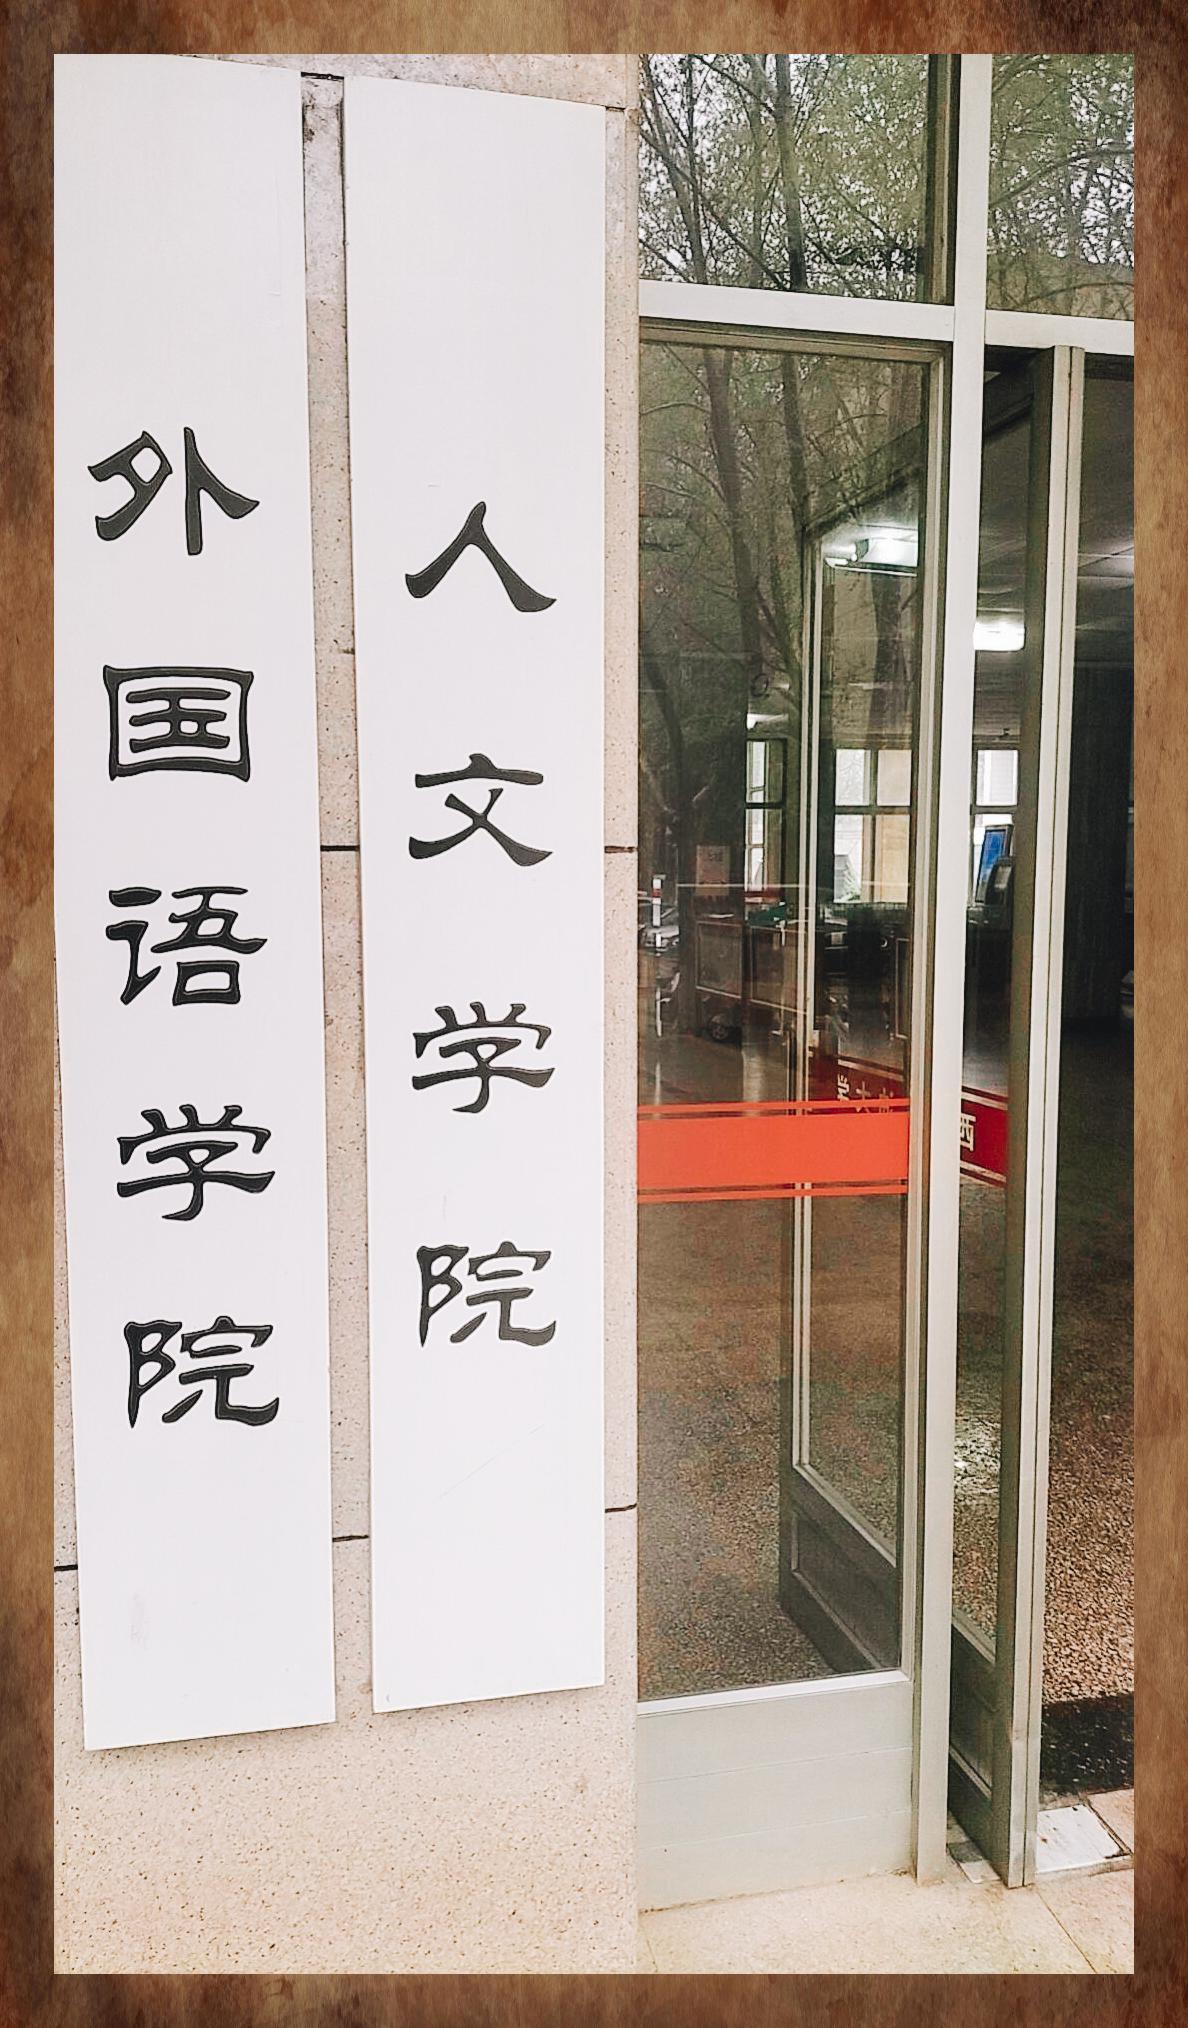 外国语学院
人文学院
西